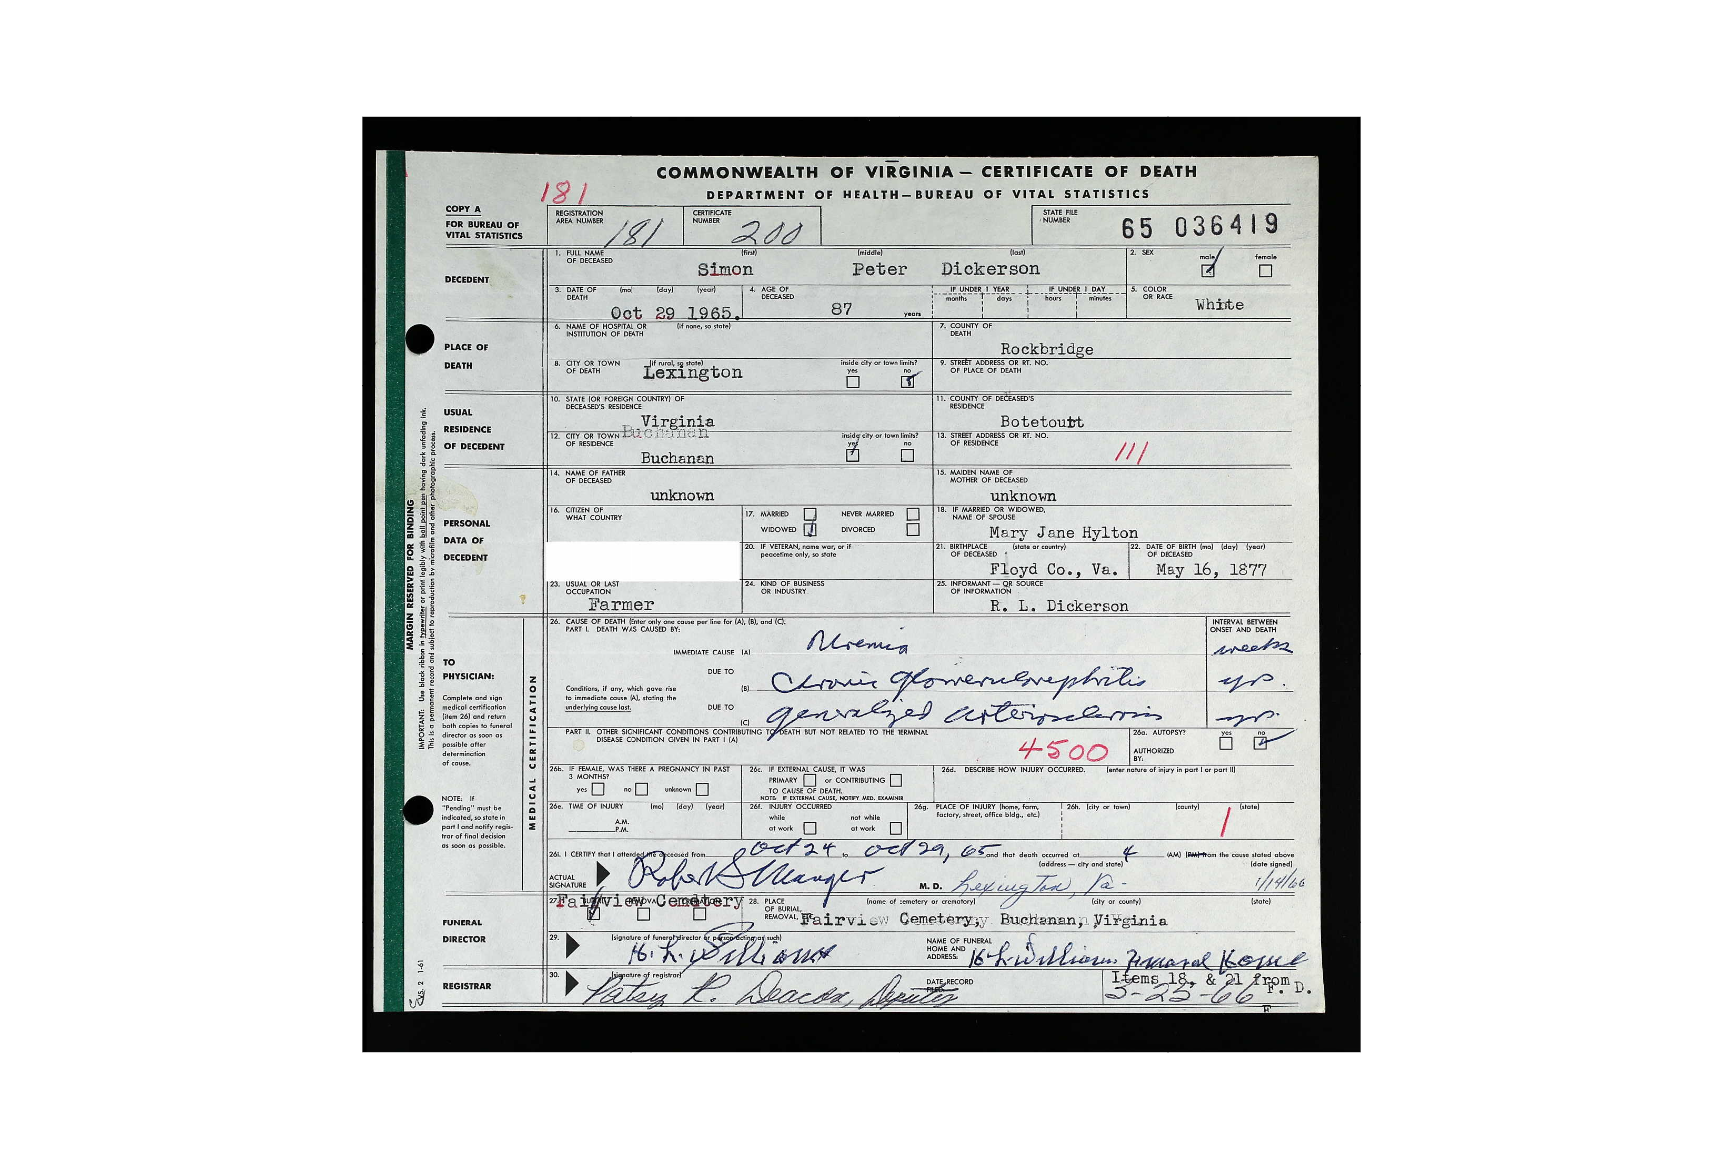 COMMONWEALTH OF VIRGINIA — CERTIFICATE OF DEATH
DEPARTMENT OF HEALTH—BUREAU OF VITAL STATISTICS
181
COPY A
FOR BUREAU OF
VITAL STATISTICS
REGISTRATION AREA NUMBER 181
CERTIFICATE NUMBER 200
STATE FILE NUMBER 65 036419
DECEDENT
1. FULL NAME OF DECEASED (first) (middle) (last)
Simon Peter Dickerson
2. SEX male female
3. DATE OF DEATH (mo) (day) (year)
Oct 29 1965.
4. AGE OF DECEASED 87 years
IF UNDER 1 YEAR months days
IF UNDER 1 DAY hours minutes
5. COLOR OR RACE White
PLACE OF
DEATH
6. NAME OF HOSPITAL OR INSTITUTION OF DEATH (if none, so state)
7. COUNTY OF DEATH
Rockbridge
8. CITY OR TOWN OF DEATH (if rural, so state)
Lexington
inside city or town limits? yes no
9. STREET ADDRESS OR RT. NO. OF PLACE OF DEATH
USUAL
RESIDENCE
OF DECEDENT
10. STATE (OR FOREIGN COUNTRY) OF DECEASED'S RESIDENCE
Virginia
11. COUNTY OF DECEASED'S RESIDENCE
Botetourt
12. CITY OR TOWN OF RESIDENCE
Buchanan
Buchanan
inside city or town limits? yes no
13. STREET ADDRESS OR RT. NO. OF RESIDENCE
111
PERSONAL
DATA OF
DECEDENT
14. NAME OF FATHER OF DECEASED
unknown
15. MAIDEN NAME OF MOTHER OF DECEASED
unknown
16. CITIZEN OF WHAT COUNTRY
17. MARRIED NEVER MARRIED
WIDOWED DIVORCED
18. IF MARRIED OR WIDOWED, NAME OF SPOUSE
Mary Jane Hylton
20. IF VETERAN, name war, or if peacetime only, so state
21. BIRTHPLACE OF DECEASED (state or country)
Floyd Co., Va.
22. DATE OF BIRTH (mo) (day) (year) OF DECEASED
May 16, 1877
23. USUAL OR LAST OCCUPATION
Farmer
24. KIND OF BUSINESS OR INDUSTRY
25. INFORMANT — OR SOURCE OF INFORMATION
R. L. Dickerson
MARGIN RESERVED FOR BINDING
IMPORTANT: Use black ribbon in typewriter or print legibly with ball point pen having dark unfading ink.
This is a permanent record and subject to reproduction by microfilm and other photographic process.
MEDICAL CERTIFICATION
TO
PHYSICIAN:
Complete and sign
medical certification
(item 26) and return
both copies to funeral
director as soon as
possible after
determination
of cause.
NOTE: If
"Pending" must be
indicated, so state in
part I and notify regis-
trar of final decision
as soon as possible.
26. CAUSE OF DEATH (Enter only one cause per line for (A), (B), and (C).
PART I. DEATH WAS CAUSED BY:
INTERVAL BETWEEN ONSET AND DEATH
IMMEDIATE CAUSE (A) Uremia weeks
DUE TO
Conditions, if any, which gave rise to immediate cause (A), stating the underlying cause last.
(B) Chronic glomerulonephritis yrs.
DUE TO
(C) generalized arteriosclerosis yrs.
PART II. OTHER SIGNIFICANT CONDITIONS CONTRIBUTING TO DEATH BUT NOT RELATED TO THE TERMINAL DISEASE CONDITION GIVEN IN PART I (A)
4500
26a. AUTOPSY? yes no
AUTHORIZED BY:
26b. IF FEMALE, WAS THERE A PREGNANCY IN PAST 3 MONTHS?
yes no unknown
26c. IF EXTERNAL CAUSE, IT WAS
PRIMARY or CONTRIBUTING
TO CAUSE OF DEATH.
NOTE: IF EXTERNAL CAUSE, NOTIFY MED. EXAMINER
26d. DESCRIBE HOW INJURY OCCURRED. (enter nature of injury in part I or part II)
26e. TIME OF INJURY (mo) (day) (year)
A.M.
P.M.
26f. INJURY OCCURRED
while at work not while at work
26g. PLACE OF INJURY (home, farm, factory, street, office bldg., etc.)
26h. (city or town) (county) (state)
1
26i. I CERTIFY that I attended the deceased from Oct 24 to Oct 29, 65 and that death occurred at 4 (AM) (PM) from the cause stated above
(address — city and state) (date signed)
ACTUAL SIGNATURE Robert S Munger M. D. Lexington, Va - 1/14/66
FUNERAL
DIRECTOR
27. Fairview Cemetery
28. PLACE OF BURIAL, REMOVAL, (name of cemetery or crematory) (city or county) (state)
Fairview Cemetery, Buchanan, Virginia
29. (signature of funeral director or person acting as such)
H. L. Williams
NAME OF FUNERAL HOME AND ADDRESS: H L Williams Funeral Home
REGISTRAR
30. (signature of registrar)
Patsy R. Deacon, Deputy
DATE RECORD FILED:
3-25-66
Items 18, & 21 from F. D.
VS. 2 1-61